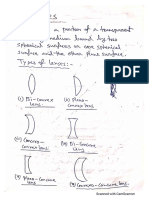 is a portion of a transparent
medium bound by two
spherical surfaces or one spherical
surface and the other plane surface.
Types of lenses:-
(i) Bi-convex
lens
(ii) Plano-
convex lens
(iii) Concavo-
convex lens
(iv) Bi-concave
lens
(v) Plano-Concave
lens
(vi) Convexo-concave lens
Scanned with CamScanner